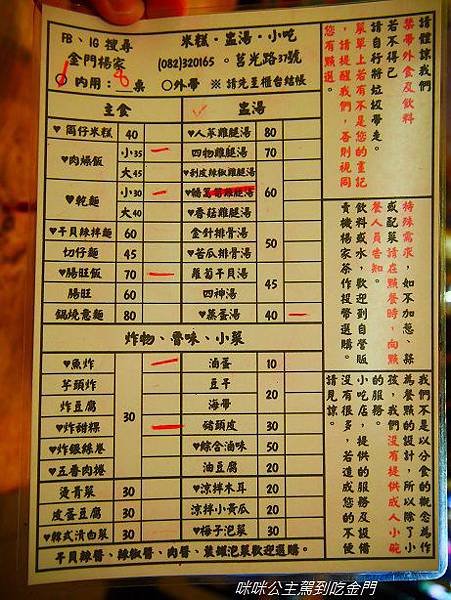 FB、IG 搜尋
金門楊家
米糕・盅湯・小吃
(082)320165 。莒光路37號
內用：8 桌
○外帶 ※ 請先至櫃台結帳
主食
盅湯
♥筒仔米糕 40
♥肉燥飯 小35
大45
♥乾麵 小30
大40
♥干貝辣拌麵 60
切仔麵 45
♥腸旺飯 70
腸旺 60
鍋燒意麵 80
♥人蔘雞腿湯 80
四物雞腿湯 70
♥剝皮辣椒雞腿湯
雞腿湯 60
♥香菇雞腿湯
金針排骨湯
♥苦瓜排骨湯 50
蘿蔔干貝湯
四神湯 45
♥蒸蛋湯 40
炸物、魯味、小菜
♥魚炸
芋頭炸
炸豆腐
♥炸甜粿 30
♥炸銀絲卷
♥五香肉捲
燙青菜 30
皮蛋豆腐 30
♥韓式漬白菜 30
滷蛋 10
豆干 20
海帶 20
豬頭皮 30
♥綜合滷味 50
油豆腐 20
♥涼拌木耳 20
涼拌小黃瓜 20
♥梅子泡菜 30
干貝辣醬、辣椒醬、肉醬、菜鋪泡菜歡迎選購。
請體諒我們
禁帶外食及飲料
若不得已
請自行將垃圾帶走。
菜單上若有不是您的畫記
，請提醒我們，否則視同
您有點選。
特殊需求，如不加蔥、蒜
或配菜請在點餐時，向點
餐人員告知。
飲料或水，歡迎到自營販
賣機楊家茶作投幣選購。
我們不是以分食的概念作
為餐點的設計，所以除了小
孩，我們沒有提供成人小碗
的服務。
小吃店，提供的服務及設備
沒有很多，若造成您的不便
請見諒。
咪咪公主駕到吃金門